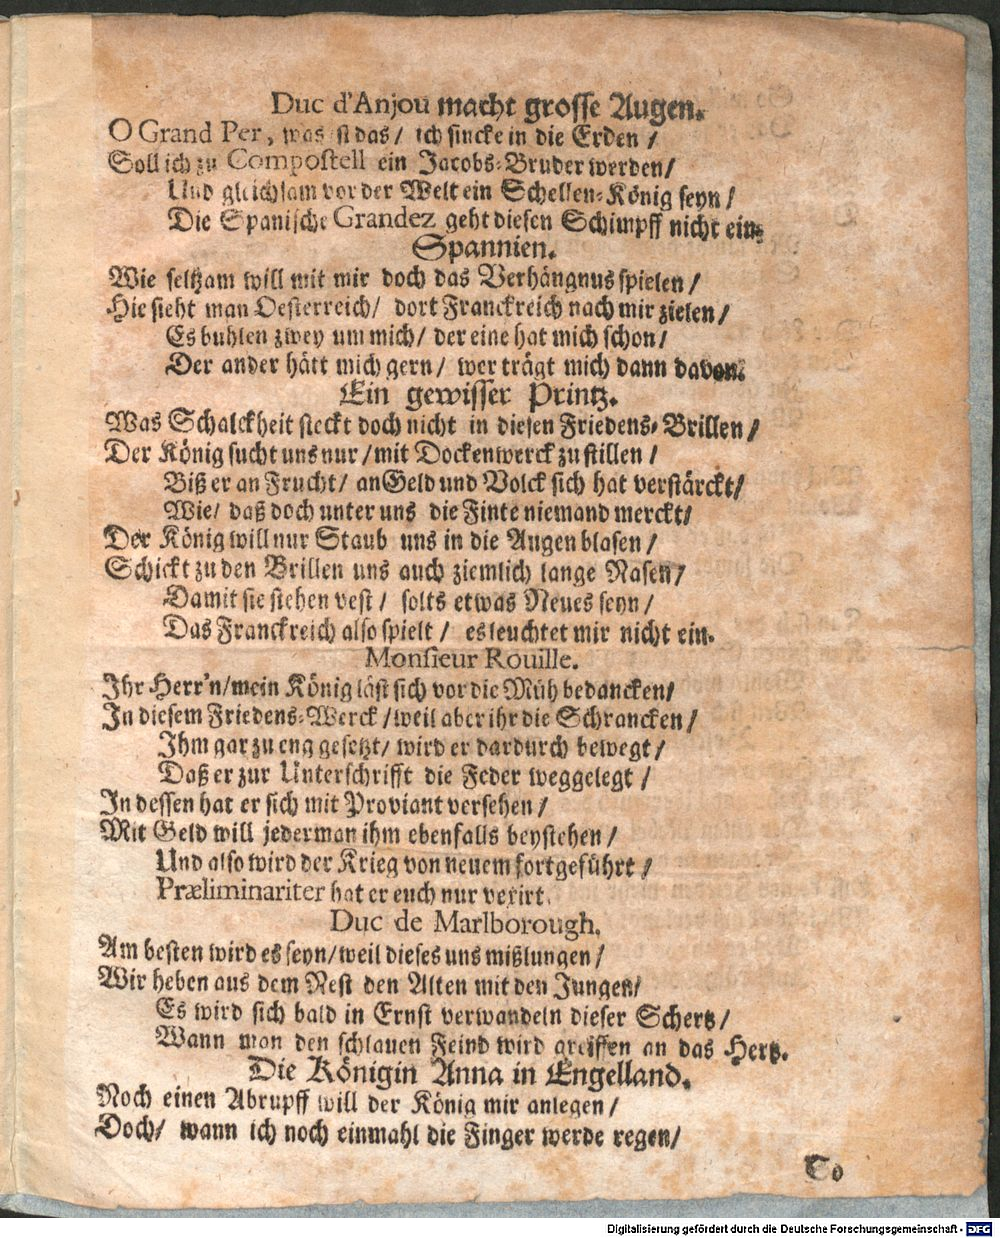 Duc d'Anjou macht grosse Augen.
O Grand Per, was ist das / ich sincke in die Erden /
Soll ich zu Compostell ein Jacobs-Bruder werden /
Und gleichsam vor der Welt ein Schellen-König seyn /
Die Spanische Grandez geht diesen Schimpff nicht ein.
Spannien.
Wie seltzam will mit mir doch das Verhängnus spielen /
Hie sieht man Oesterreich / dort Franckreich nach mir zielen /
Es buhlen zwey um mich / der eine hat mich schon /
Der ander hätt mich gern / wer trägt mich dann davon.
Ein gewisser Printz.
Was Schalckheit steckt doch nicht in diesen Friedens-Brillen /
Der König sucht uns nur / mit Dockenwerck zu stillen /
Biß er an Frucht / an Geld und Volck sich hat verstärckt /
Wie / daß doch unter uns die Finte niemand merckt /
Der König will nur Staub uns in die Augen blasen /
Schickt zu den Brillen uns auch ziemlich lange Nasen /
Damit sie stehen vest / solts etwas Neues seyn /
Das Franckreich also spielt / es leuchtet mir nicht ein.
Monsieur Rouille.
Ihr Herr'n / mein König läst sich vor die Müh bedancken /
In diesem Friedens-Werck / weil aber ihr die Schrancken /
Ihm gar zu eng gesetzt / wird er dardurch bewegt /
Daß er zur Unterschrifft die Feder weggelegt /
In dessen hat er sich mit Proviant versehen /
Mit Geld will jederman ihm ebenfalls beystehen /
Und also wird der Krieg von neuem fortgeführt /
Præliminariter hat er euch nur vexirt.
Duc de Marlborough.
Am besten wird es seyn / weil dieses uns mißlungen /
Wir heben aus dem Nest den Alten mit den Jungen /
Es wird sich bald in Ernst verwandeln dieser Schertz /
Wann man den schlauen Feind wird greiffen an das Hertz.
Die Königin Anna in Engelland.
Noch einen Abrupff will der König mir anlegen /
Doch / wann ich noch einmahl die Finger werde regen /
So
Digitalisierung gefördert durch die Deutsche Forschungsgemeinschaft - DFG